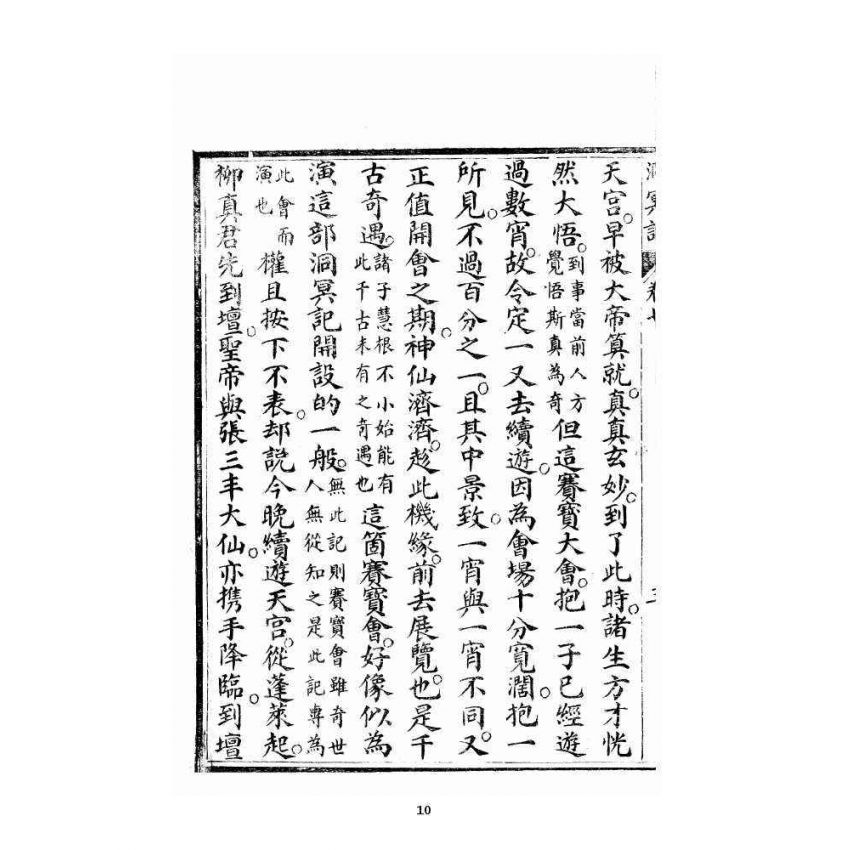 洞冥記 卷七 三
天宮。早被大帝算就。真真玄妙。到了此時。諸生方才恍
然大悟。到事當前人方覺悟斯真為奇但這賽寶大會。抱一子已經遊
過數宵。故今定一又去續遊。因為會場十分寬濶。抱一
所見。不過百分之一。且其中景致。一宵與一宵不同。又
正值開會之期。神仙濟濟。趁此機緣。前去展覽。也是千
古奇遇。諸子慧根不小始能有此千古未有之奇遇也這箇賽寶會。好像似為
演這部洞冥記開設的一般。無此記則賽寶會雖奇世人無從知之是此記專為
此會而演也權且按下不表。却説今晚續遊天宮。從蓬萊起。
柳真君先到壇。聖帝與張三丰大仙。亦携手降臨。到壇
10